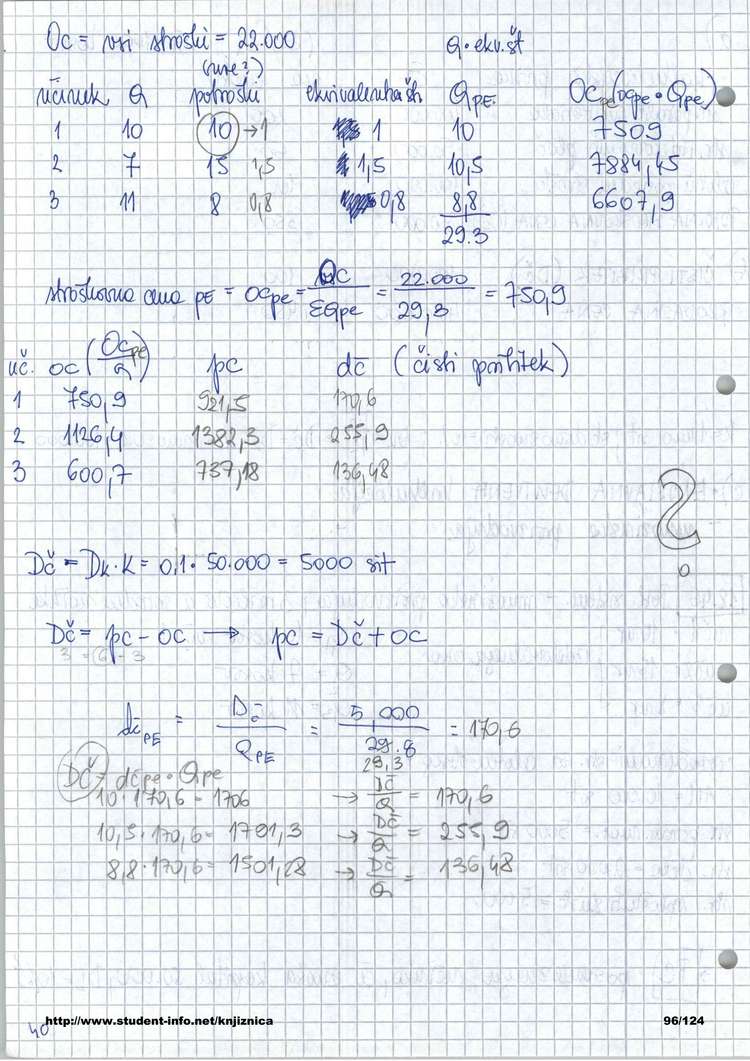 Oc = vsi stroški = 22.000
Q · ekv. št
(ure?)
učinek Q potroški ekvivalentna št QPE OCpe (ocpe · Qpe)
1 10 10 → 1 1 10 7509
2 7 15 1,5 1,5 10,5 7884,45
3 11 8 0,8 0,8 8,8 6607,9
29.3
stroškovna cena PE = OCpe = OC / ΣQpe = 22.000 / 29,3 = 750,9
uč. OC (OcPE / Q) pc dč (čisti pribitek)
1 750,9 921,5 170,6
2 1126,4 1382,3 255,9
3 600,7 737,18 136,48
?
Dč = Dk · K = 0,1 · 50.000 = 5000 sit
Dč = pc - oc → pc = Dč + oc
3 = 6 - 3
dčPE = Dč / QPE = 5 000 / 29.8 = 170,6
29,3
Dč = dčpe · Qpe
10 · 170,6 = 1706 → Dč / Q = 170,6
10,5 · 170,6 = 1791,3 → Dč / Q = 255,9
8,8 · 170,6 = 1501,28 → Dč / Q = 136,48
40
http://www.student-info.net/knjiznica 96/124